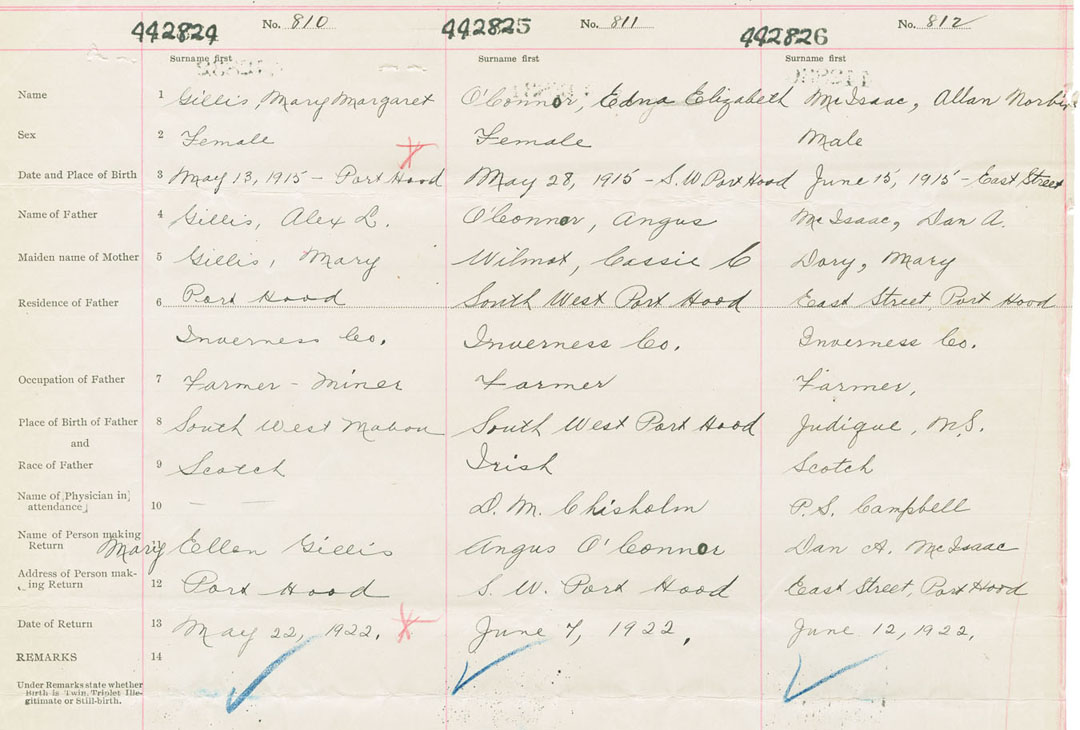 No. 810 No. 811 No. 812
442824 442825 442826
Surname first Surname first Surname first
Name 1 Gillis, Mary Margaret O'Connor, Edna Elizabeth McIsaac, Allan
Sex 2 Female Female Male
Date and Place of Birth 3 May 13, 1915 - Port Hood May 28, 1915 - S. W. Port Hood June 15, 1915 - East Street
Name of Father 4 Gillis, Alex L. O'Connor, Angus McIsaac, Dan A.
Maiden name of Mother 5 Gillis, Mary Wilmot, Cassie C Dory, Mary
Residence of Father 6 Port Hood South West Port Hood East Street, Port Hood
Inverness Co. Inverness Co. Inverness Co.
Occupation of Father 7 Farmer - Miner Farmer Farmer,
Place of Birth of Father 8 South West Mabou South West Port Hood Judique, N.S.
and
Race of Father 9 Scotch Irish Scotch
Name of [Physician in]
attendance] 10 — — D. M. Chisholm P.S. Campbell
Name of Person making
Return 11 Mary Ellen Gillis Angus O'Connor Dan A. McIsaac
Address of Person mak-
ing Return 12 Port Hood S. W. Port Hood East Street, Port Hood
Date of Return 13 May 22, 1922. June 7, 1922, June 12, 1922,
REMARKS 14
Under Remarks state whether
Birth is Twin, Triplet Ille-
gitimate or Still-birth.